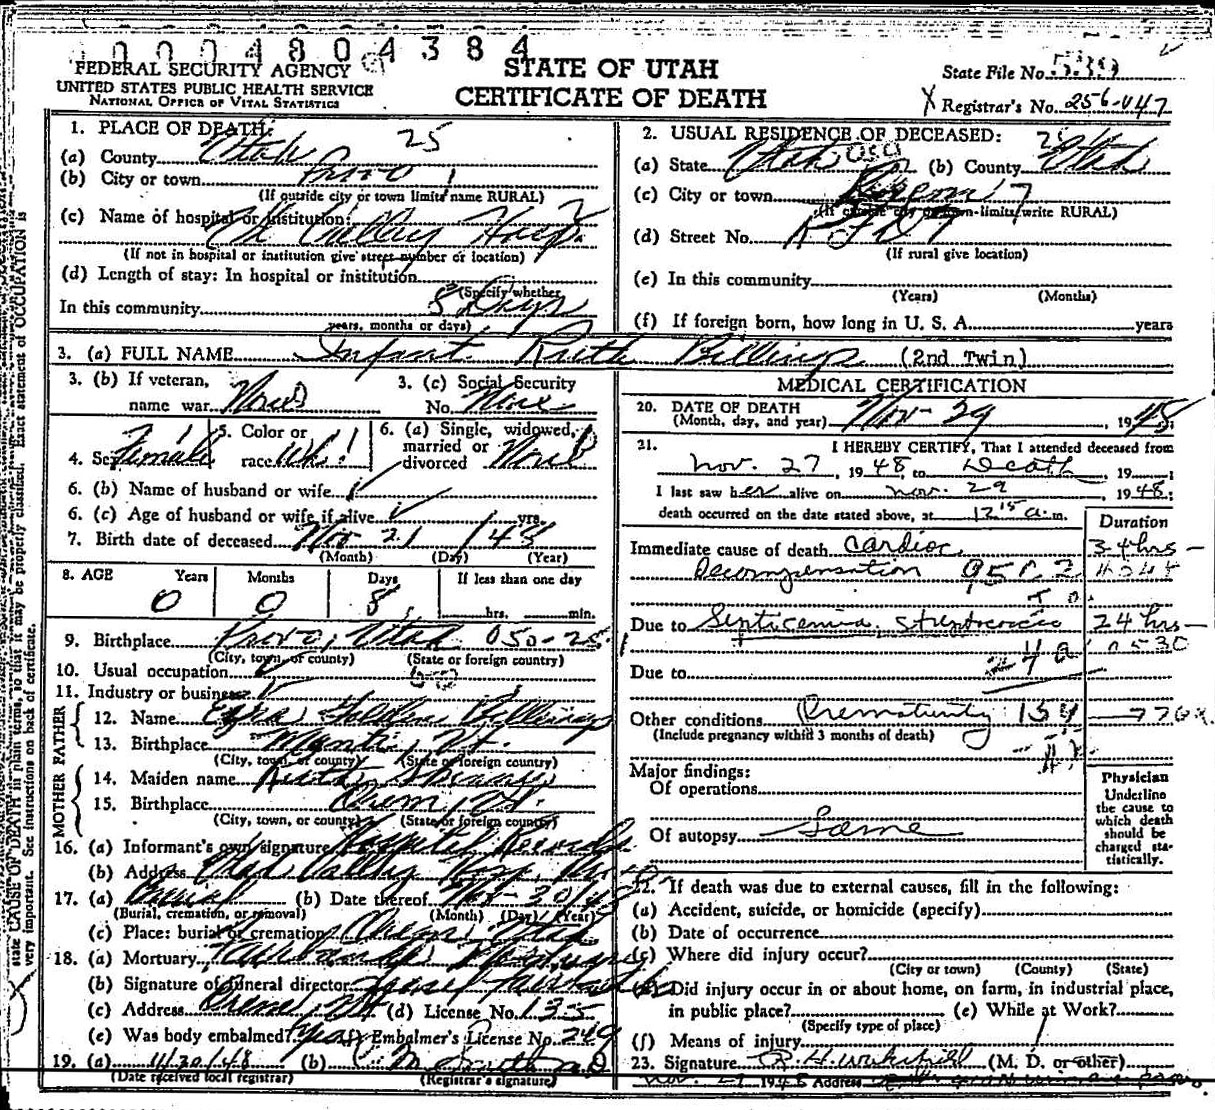 0004804384
FEDERAL SECURITY AGENCY
UNITED STATES PUBLIC HEALTH SERVICE
NATIONAL OFFICE OF VITAL STATISTICS
STATE OF UTAH
CERTIFICATE OF DEATH
State File No. 539
X Registrar's No. 256-447
1. PLACE OF DEATH: 25
(a) County Utah
(b) City or town Provo 1
(If outside city or town limits name RURAL)
(c) Name of hospital or institution: 2
Ut Valley Hosp.
(If not in hospital or institution give street number or location)
(d) Length of stay: In hospital or institution
(Specify whether
In this community 8 Days
years, months or days)
2. USUAL RESIDENCE OF DECEASED:
(a) State Utah 050 (b) County Utah
(c) City or town Orem 7
(If outside city or town limits write RURAL)
(d) Street No. R F D
(If rural give location)
(e) In this community
(Years) (Months)
(f) If foreign born, how long in U. S. A. years
3. (a) FULL NAME Infant Ruth Billings (2nd Twin)
3. (b) If veteran, name war None
3. (c) Social Security No. None
4. Sex Female
5. Color or race Wh 1
6. (a) Single, widowed, married or divorced
6. (b) Name of husband or wife
6. (c) Age of husband or wife if alive yrs.
7. Birth date of deceased Nov 21 48
(Month) (Day) (Year)
8. AGE Years Months Days If less than one day
0 0 8 hrs. min.
9. Birthplace Provo, Utah 050-25
(City, town, or county) (State or foreign country)
10. Usual occupation
11. Industry or business
FATHER
12. Name Ezra Golden Billings
13. Birthplace Manti, Ut.
(City, town, or county) (State or foreign country)
MOTHER
14. Maiden name Ruth
15. Birthplace Orem, Ut.
(City, town, or county) (State or foreign country)
16. (a) Informant's own signature Hospital Records
(b) Address Utah Valley Hosp,
17. (a) Burial (b) Date thereof Nov-30/48
(Burial, cremation, or removal) (Month) (Day) (Year)
(c) Place: burial or cremation Orem, Utah
18. (a) Mortuary Mortuary
(b) Signature of funeral director
(c) Address Orem, Ut (d) License No. 135
(e) Was body embalmed? Yes (f) Embalmer's License No. 249
19. (a) 11/30/48 (b) M Smith MD
(Date received local registrar) (Registrar's signature)
MEDICAL CERTIFICATION
20. DATE OF DEATH
(Month, day, and year) Nov-29, 1948;
21. I HEREBY CERTIFY, That I attended deceased from
Nov. 27, 1948, to Death, 19 ;
I last saw her alive on Nov. 29, 1948;
death occurred on the date stated above, at 12 15 a.m.
Duration
Immediate cause of death Cardiac 34 hrs
Decompensation
Due to Septicemia, 24 hrs
0530
Due to
Other conditions Prematurity 159
(Include pregnancy within 3 months of death)
Major findings:
Of operations
Of autopsy Same
Physician
Underline
the cause to
which death
should be
charged sta-
tistically.
22. If death was due to external causes, fill in the following:
(a) Accident, suicide, or homicide (specify)
(b) Date of occurrence
(c) Where did injury occur?
(City or town) (County) (State)
(d) Did injury occur in or about home, on farm, in industrial place,
in public place? (e) While at Work?
(Specify type of place)
(f) Means of injury
23. Signature R. H. Wakefield (M. D. or other)
Nov. 29 1948 Address
state CAUSE OF DEATH in plain terms, so that it may be properly classified. Exact statement of OCCUPATION is
very important. See instructions on back of certificate.